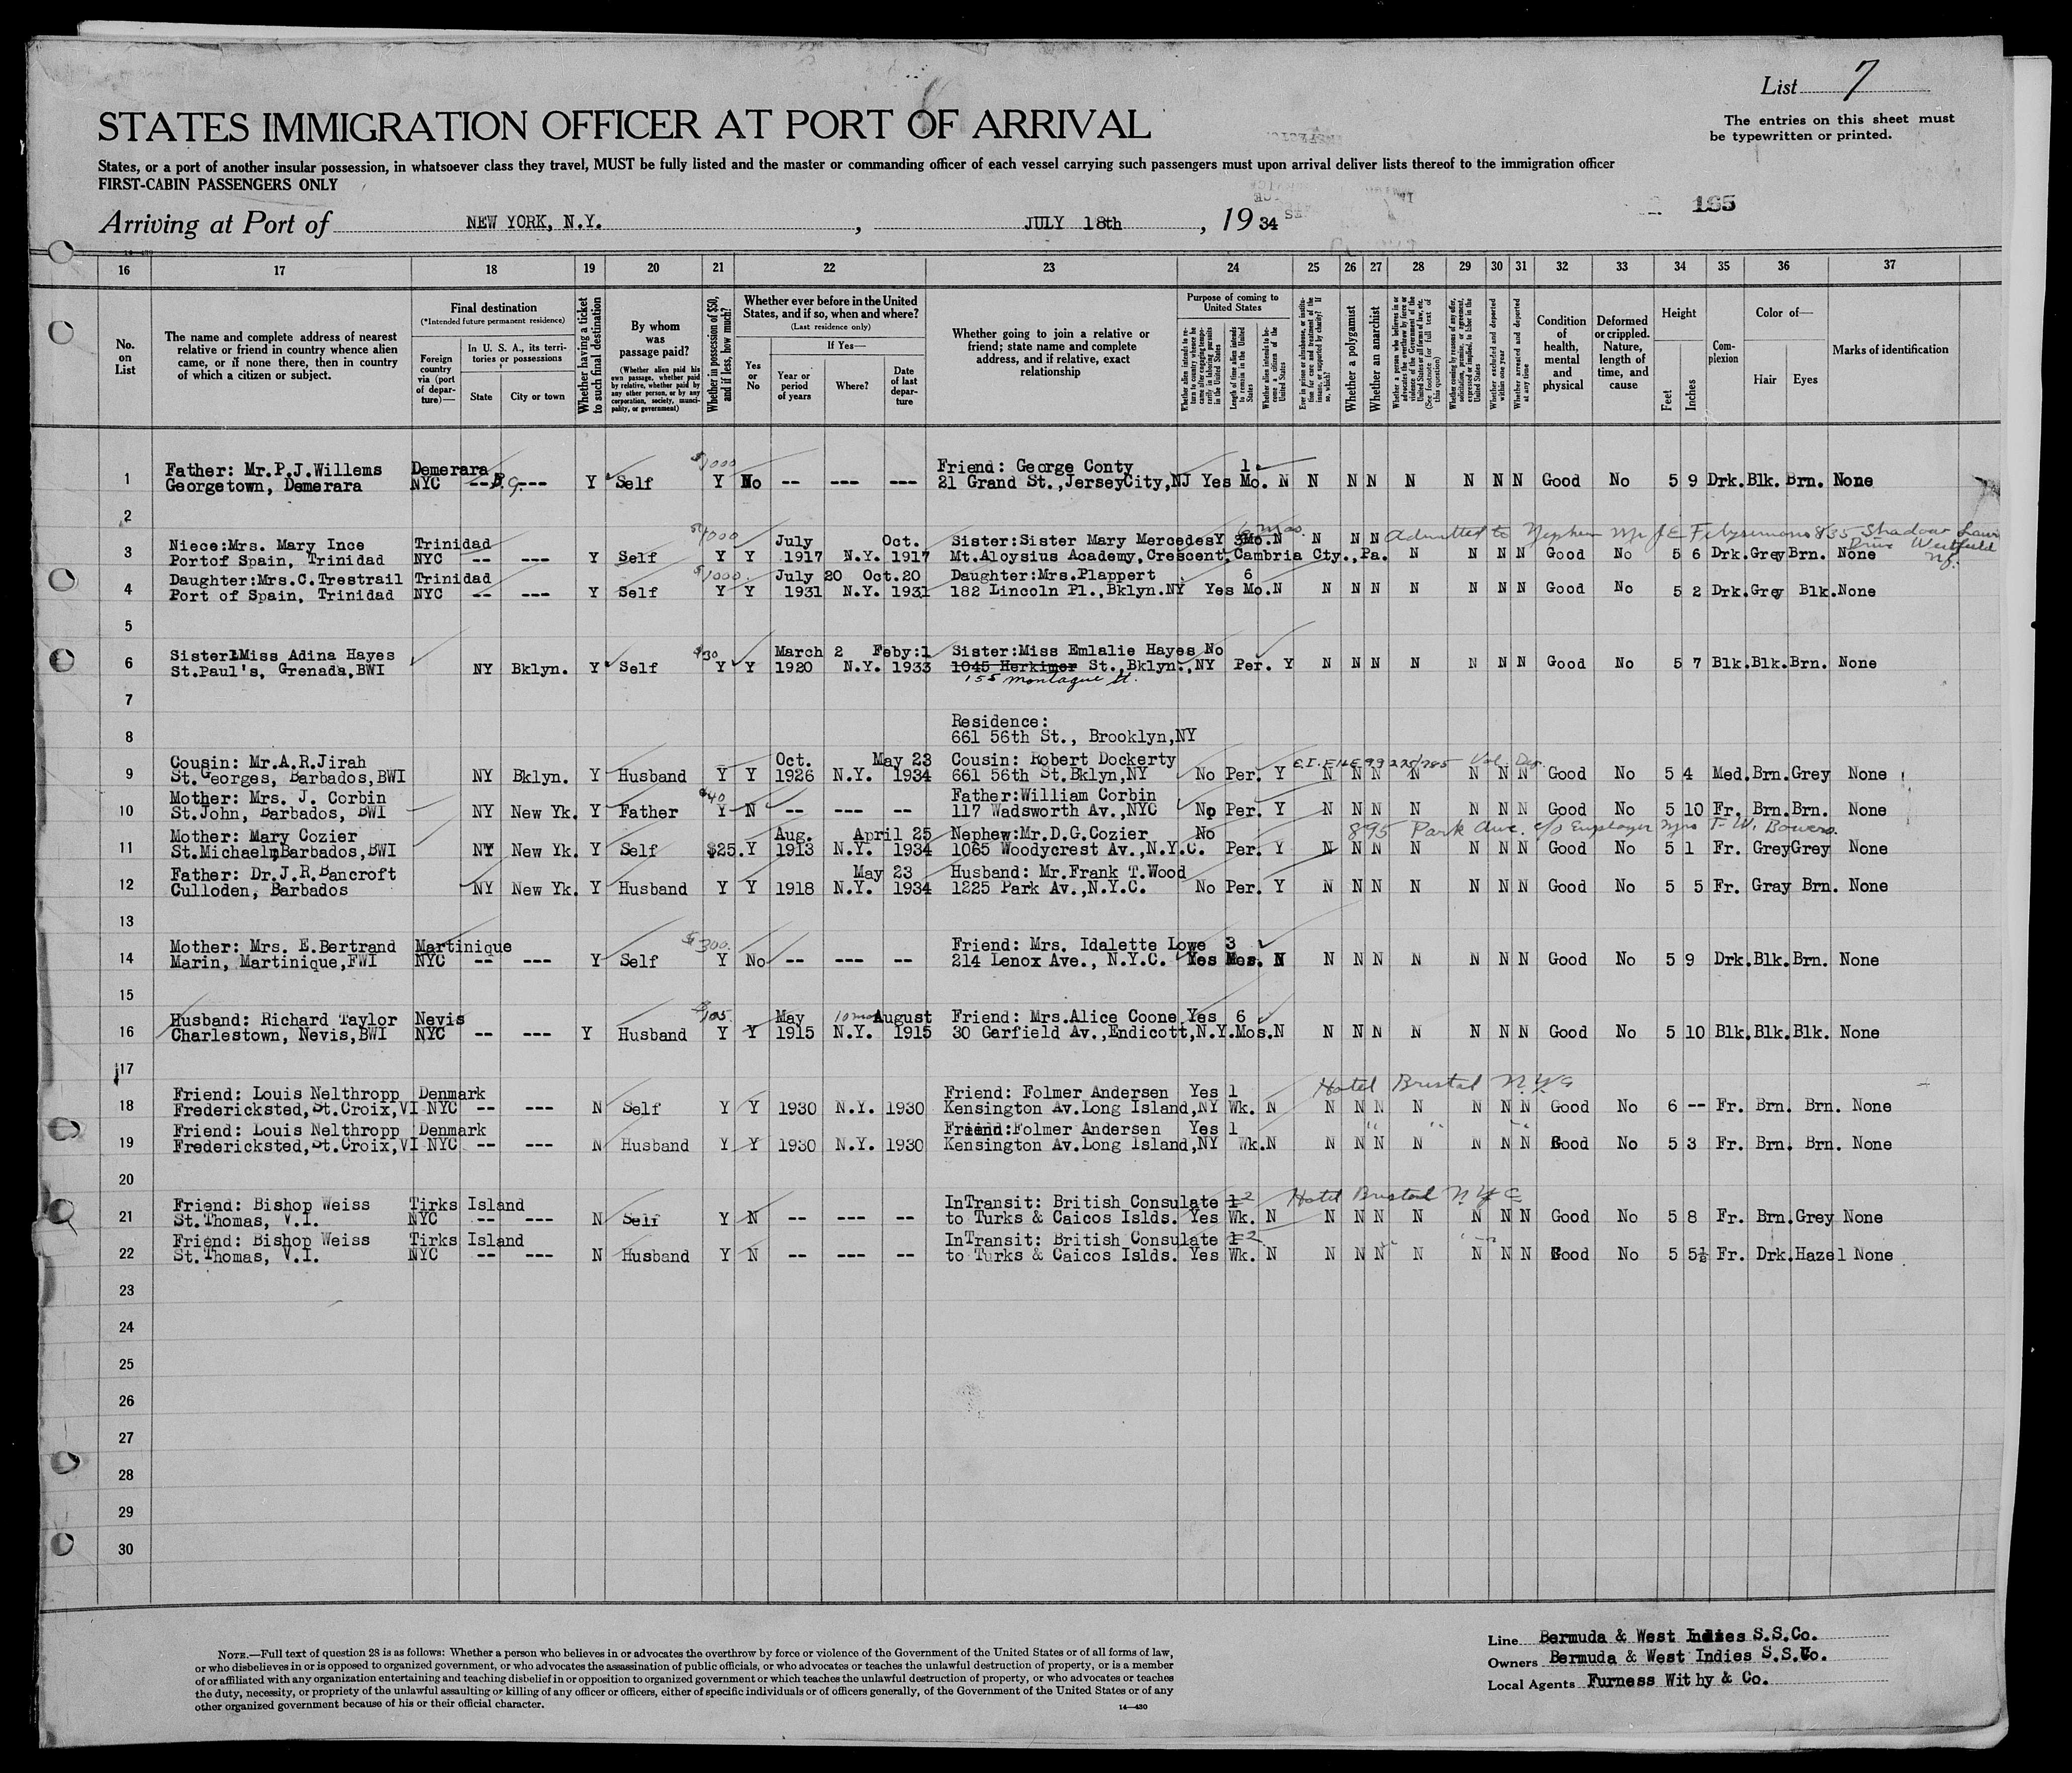 List 7
STATES IMMIGRATION OFFICER AT PORT OF ARRIVAL
The entries on this sheet must
be typewritten or printed.
States, or a port of another insular possession, in whatsoever class they travel, MUST be fully listed and the master or commanding officer of each vessel carrying such passengers must upon arrival deliver lists thereof to the immigration officer
FIRST-CABIN PASSENGERS ONLY
165
Arriving at Port of NEW YORK, N.Y. , JULY 18th , 19 34
16 17 18 19 20 21 22 23 24 25 26 27 28 29 30 31 32 33 34 35 36 37
No. on List
The name and complete address of nearest relative or friend in country whence alien came, or if none there, then in country of which a citizen or subject.
Final destination
(*Intended future permanent residence)
Foreign country via (port of departure)—
In U. S. A., its territories or possessions
State
City or town
Whether having a ticket to such final destination
By whom was passage paid?
(Whether alien paid his own passage, whether paid by relative, whether paid by any other person, or by any corporation, society, municipality, or government)
Whether in possession of $50, and if less, how much?
Whether ever before in the United States, and if so, when and where?
(Last residence only)
Yes or No
If Yes—
Year or period of years
Where?
Date of last departure
Whether going to join a relative or friend; state name and complete address, and if relative, exact relationship
Purpose of coming to United States
Length of time alien intends to remain in the United States
Whether alien intends to become a citizen of the United States
Whether a polygamist
Whether an anarchist
(See footnote for full text of this question)
Whether excluded and deported within one year
Whether arrested and deported at any time
Condition of health, mental and physical
Deformed or crippled. Nature, length of time, and cause
Height
Feet
Inches
Complexion
Color of—
Hair
Eyes
Marks of identification
$1000
Father: Mr.P.J.Willems Demerara Friend: George Conty 1
1 Georgetown, Demerara NYC -- B.G. --- Y Self Y No -- --- --- 21 Grand St.,JerseyCity,NJ Yes Mo. N N N N N N N N Good No 5 9 Drk. Blk. Brn. None
2
$1000 6 mos Admitted to Nephew Mr J E Fitzsimons 835 Shadow Lawn
Niece:Mrs. Mary Ince Trinidad July Oct. Sister:Sister Mary Mercedes Y Mo.N N N N Drive Westfield
3 Portof Spain, Trinidad NYC -- --- Y Self Y Y 1917 N.Y. 1917 Mt.Aloysius Academy,Crescent,Cambria Cty.,Pa. N N N N Good No 5 6 Drk.Grey Brn. None NJ.
$1000.
Daughter:Mrs.C.Trestrail Trinidad July 20 Oct.20 Daughter:Mrs.Plappert 6
4 Port of Spain, Trinidad NYC -- --- Y Self Y Y 1931 N.Y. 1931 182 Lincoln Pl.,Bklyn.NY Yes Mo.N N N N N N N N Good No 5 2 Drk.Grey Blk.None
5
$30
Sister:Miss Adina Hayes March 2 Feby:1 Sister:Miss Emlalie Hayes No
6 St.Paul's, Grenada,BWI NY Bklyn. Y Self Y Y 1920 N.Y. 1933 1045 Herkimer St.,Bklyn.,NY Per. Y N N N N N N N Good No 5 7 Blk.Blk.Brn. None
155 Montague St.
7
Residence:
8 661 56th St., Brooklyn,NY
Cousin: Mr.A.R.Jirah Oct. May 23 Cousin: Robert Dockerty
9 St.Georges, Barbados,BWI NY Bklyn. Y Husband Y Y 1926 N.Y. 1934 661 56th St.Bklyn,NY No Per. Y N N N N N N N Good No 5 4 Med.Brn.Grey None
$40
Mother: Mrs. J. Corbin Father:William Corbin
10 St.John, Barbados, BWI NY New Yk. Y Father Y N -- --- -- 117 Wadsworth Av.,NYC No Per. Y N N N N N N N Good No 5 10 Fr. Brn.Brn. None
895 Park Ave. c/o Employer Mrs F W. Bowers.
Mother: Mary Cozier Aug. April 25 Nephew:Mr.D.G.Cozier No
11 St.Michael,Barbados,BWI NY New Yk. Y Self $25. Y 1913 N.Y. 1934 1065 Woodycrest Av.,N.Y.C. Per. Y N N N N N N N Good No 5 1 Fr. GreyGrey None
Father: Dr.J.R.Bancroft May 23 Husband: Mr.Frank T.Wood
12 Culloden, Barbados NY New Yk. Y Husband Y Y 1918 N.Y. 1934 1225 Park Av.,N.Y.C. No Per. Y N N N N N N N Good No 5 5 Fr. Gray Brn. None
13
$300.
Mother: Mrs. E.Bertrand Martinique Friend: Mrs. Idalette Lowe 3
14 Marin, Martinique,FWI NYC -- --- Y Self Y No -- --- -- 214 Lenox Ave., N.Y.C. Yes Mos. N N N N N N N N Good No 5 9 Drk.Blk.Brn. None
15
$105.
Husband: Richard Taylor Nevis May 10 mos August Friend: Mrs.Alice Coone Yes 6
16 Charlestown, Nevis,BWI NYC -- --- Y Husband Y Y 1915 N.Y. 1915 30 Garfield Av.,Endicott,N.Y.Mos.N N N N N N N N Good No 5 10 Blk.Blk.Blk. None
17
Hotel Bristol N.Y.C
Friend: Louis Nelthropp Denmark Friend: Folmer Andersen Yes 1
18 Fredericksted,St.Croix,VI NYC -- --- N Self Y Y 1930 N.Y. 1930 Kensington Av.Long Island,NY Wk. N N N N N N N N Good No 6 -- Fr. Brn. Brn. None
Friend: Louis Nelthropp Denmark Friend:Folmer Andersen Yes 1
19 Fredericksted,St.Croix,VI NYC -- --- N Husband Y Y 1930 N.Y. 1930 Kensington Av.Long Island,NY Wk.N N N N N N N N Good No 5 3 Fr. Brn. Brn. None
20
Hotel Bristol N.Y C
Friend: Bishop Weiss Tirks Island InTransit: British Consulate 1 2
21 St.Thomas, V.I. NYC -- --- N Self Y N -- --- -- to Turks & Caicos Islds. Yes Wk. N N N N N N N N Good No 5 8 Fr. Brn.Grey None
Friend: Bishop Weiss Tirks Island InTransit: British Consulate 1 2
22 St.Thomas, V.I. NYC -- --- N Husband Y N -- --- -- to Turks & Caicos Islds. Yes Wk. N N N N N N N N Good No 5 5½ Fr. Drk.Hazel None
23
24
25
26
27
28
29
30
NOTE.—Full text of question 28 is as follows: Whether a person who believes in or advocates the overthrow by force or violence of the Government of the United States or of all forms of law,
or who disbelieves in or is opposed to organized government, or who advocates the assassination of public officials, or who advocates or teaches the unlawful destruction of property, or is a member
of or affiliated with any organization entertaining and teaching disbelief in or opposition to organized government or which teaches the unlawful destruction of property, or who advocates or teaches
the duty, necessity, or propriety of the unlawful assaulting or killing of any officer or officers, either of specific individuals or of officers generally, of the Government of the United States or of any
other organized government because of his or their official character.
14—430
Line Bermuda & West Indies S.S.Co.
Owners Bermuda & West Indies S.S.Co.
Local Agents Furness Withy & Co.